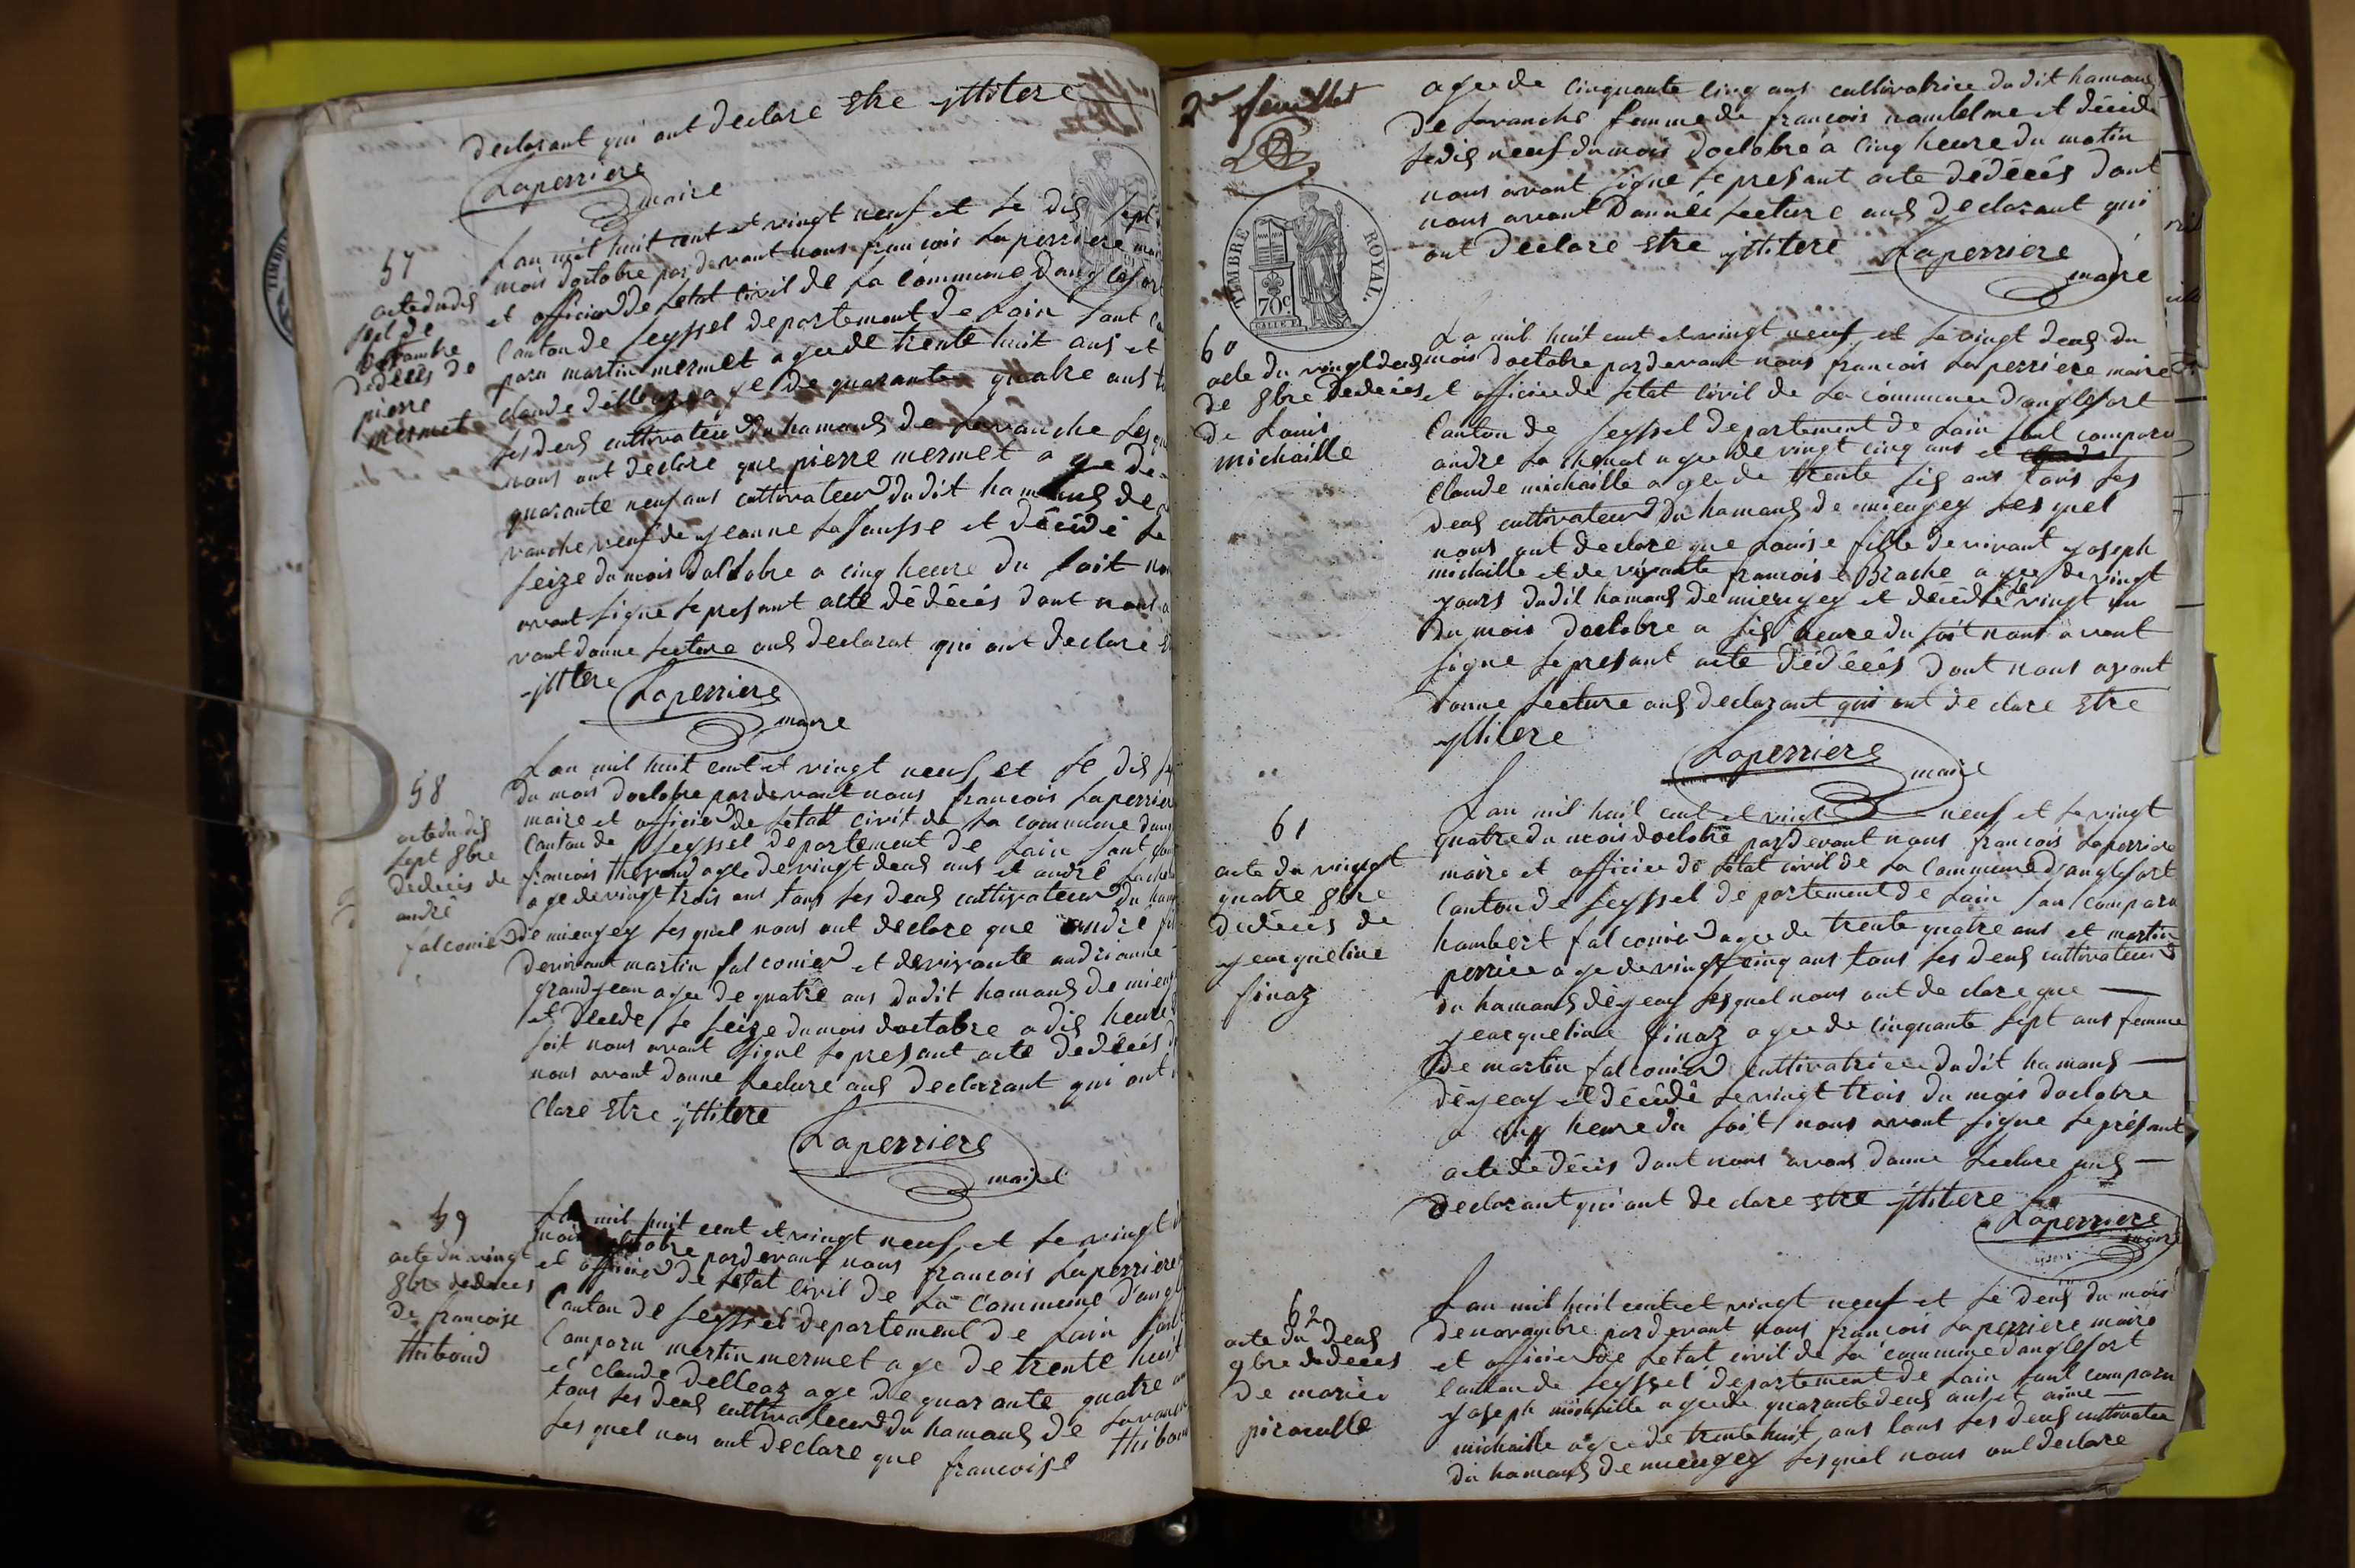 declarant qui ont declare Estre yttitere
Laperriere
maire
57
acte du dis
sept de
octambre
dedecés de
pierre
mermet
Lan mil huit cent et vingt neuf et le dis sept
mois doctobre par devant nous francois Laperriere mai
et officier de letat civil de la commune danglefort
Canton de seyssel departement de Lain sont
paru martin mermet agee de trente huit ans et
claude delleaz age de quarante quatre ans
les deus cultivateur du hamaus de Lavanche Les
nous ont declare que pierre mermet agee de
quarante neuf ans cultivateur dudit hamaus de
vanche veuf de yeanne La sausse et décédé le
seize du mois doctobre a cinq heure du soit nou
avont signe le presant acte dédécés dont nous a
vont donne lecture aus declarat qui ont declare
yttitere
Laperriere
maire
58
acte du dis
sept 8bre
dedecés de
andré
falconier
Lan mil huit cent et vingt neuf et le dis
du mois doctobre pardevant nous francois Laperrier
maire et officier de letatt civit de la commune dan
Canton de seyssel departement de Lain sont
francois thevand agee de vingt deus ans et andré
age de vingt trois ans tous les deus cultivateur du ham
de miengey lesquel nous ont declare que andre
devivant martin falconier et devivante andrianne
grandyean agee de quatre ans dudit hamaus de mieng
et decede le seize du mois doctobre a dis heure
soit nous avont signe le presant acte dedecés
nous avont donne lecture aus declarrant qui ont
clare Estre yttitere
Laperriere
maire
59
acte du vingt
8bre dedeces
de francoise
thiboud
Lan mil huit cent et vingt neuf et le vingt
mois doctobre pardevant nous francois Laperriere
et officier de letat civil de La Commune d'angl
Canton de seyssel departement de Lain sont
Comparu martin mermet age de trente huit
et claude delleaz age de quarante quatre an
tous les deus cultivateur du hamaus de Lavanch
Les quel nous ont declare que francoise thiboud
2e feuillet
agee de cinquante cinq ans cultivatrice dudit hamaus
de Lavanche femme de francois et décéde
le dis neuf du mois doctobre à cinq heure du matin
nous avont signe le presant acte dédécés dont
nous avont donnée lecture aus declarant qui
ont declare Estre yttitere Laperriere
maire
TIMBRE ROYAL
70c
60
acte du vingt deus
de 8bre dedecés
de Louis
michaille
La mil huit cent et vingt neuf et le vingt deus du
mois doctobre pardevant nous francois Laperriere maire
et officier de letat civil de La commune danglefort
Canton de seyssel departement de Lain sont comparu
andre Lachenal agee de vingt cinq ans et
Claude michaille agee de trente sis ans tous les
deus cultivateur du hamaus de miengey Lesquel
nous ont declare que Louise fille devivant yoseph
michaille et de vivante francoise Brache agee de vingt
yours dudit hamaus de miengey et décéde le vingt un
du mois doctobre a sis heure du soit nous avont
signe le presant acte dédécés dont nous avont
donne lecture aus declarant qui ont declare Estre
yttitere
Laperriere
maire
61
acte du vingt
quatre 8bre
dedecés de
yeacqueline
finaz
Lan mil huit cent et vingt neuf et le vingt
quatre du mois doctobre pardevant nous francois Laperriere
maire et officier de letat civil de La Commune d'anglefort
Canton de seyssel departement de Lain son comparu
hambert falconier agee de trente quatre ans et martin
perrier age de vingt cinq ans tous les deus cultivateur
du hamaus déyeay lesquel nous ont declare que
yeacqueline finaz agee de cinquante sept ans femme
de martin falconier cultivatrice dudit hamaus
déyeay et décédé le vingt trois du mois doctobre
a cinq heure du soit nous avont signe le présant
acte de décés dont nous avons donne lecture aus
declarant qui ont declare Estre yttitere
Laperriere
maire
62
acte du deus
9bre dedeces
de marie
piravelle
Lan mil huit cent et vingt neuf et le deus du mois
denovembre pardevant nous francois Laperriere maire
et officier de letat civil de la commune danglefort
Canton de seyssel departement de Lain sont comparu
yoseph michaille agee de quarante deus ans et aime
michaille agee de trente huit ans tous les deus cultivateur
du hamaus de miengey lesquel nous ont declare